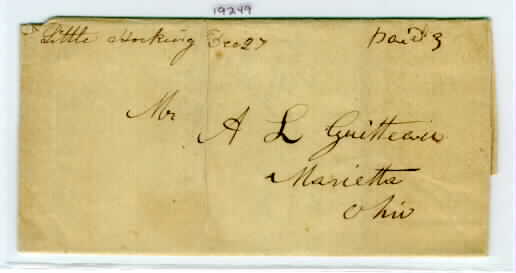 19249
Little Hocking Dec 27 Paid 3
Mr
A L Guitteau
Marietta
Ohio